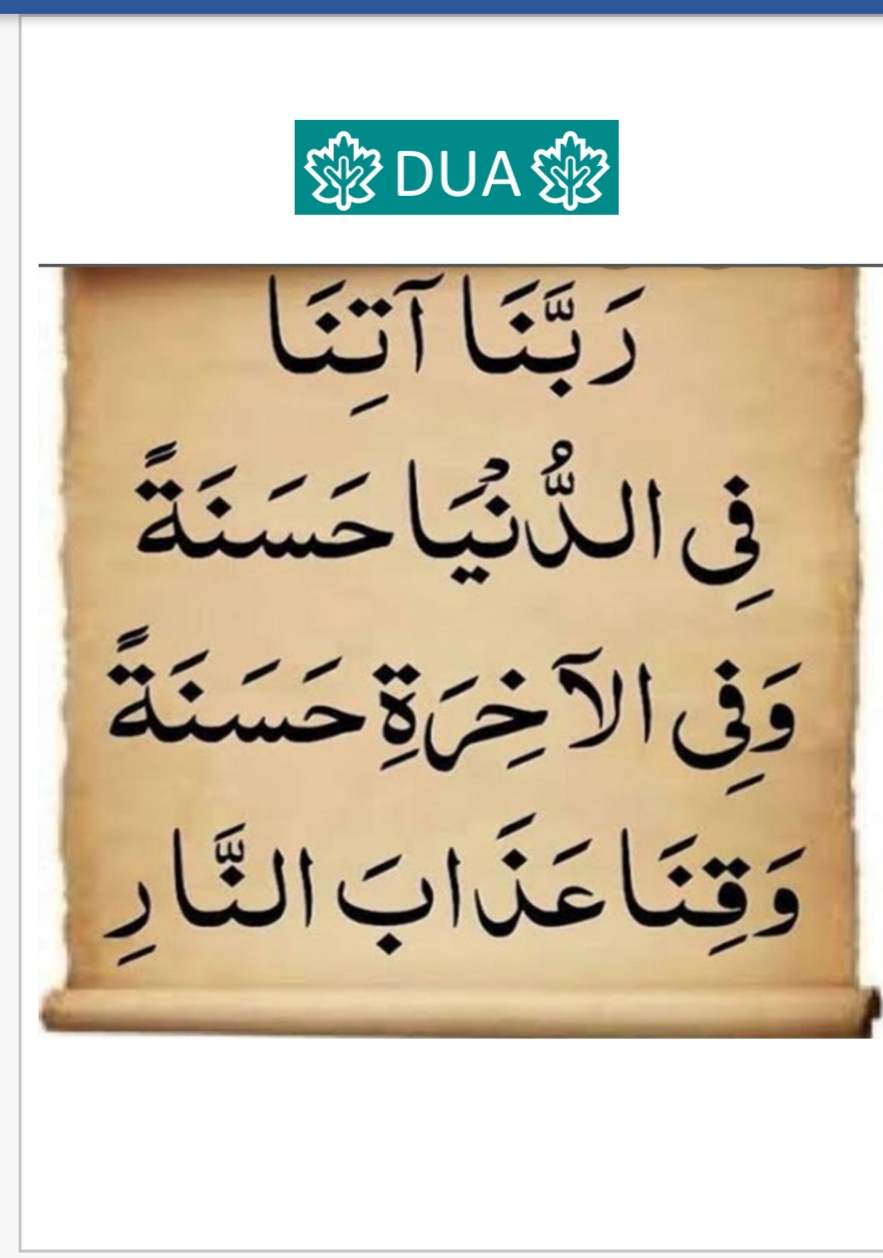 DUA
رَبَّنَا آتِنَا
فِى الدُّنْيَا حَسَنَةً
وَفِى الآخِرَةِ حَسَنَةً
وَقِنَا عَذَابَ النَّارِ